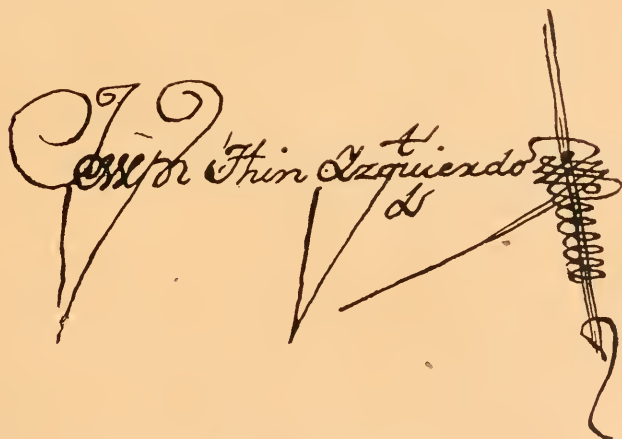 Joseph Thin Izquierdo